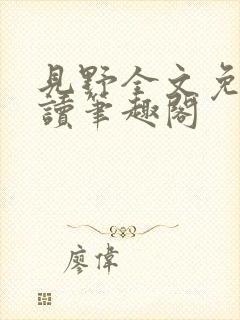 見野全文免
讀筆趣閣
廖偉